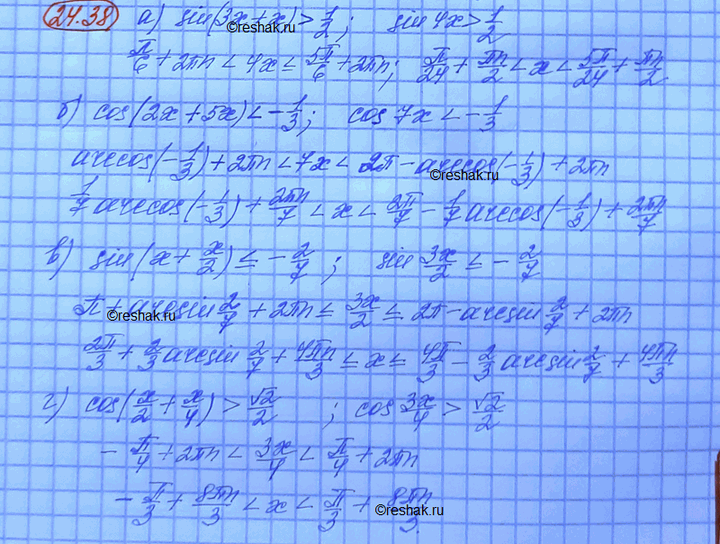 24.38 а) sin(3x+x)>1/2; sin 4x>1/2
©reshak.ru
π/6+2πn<4x≤5π/6+2πn; π/24+πn/2<x<5π/24+πn/2
б) cos(2x+5x)<-1/3; cos 7x<-1/3
arccos(-1/3)+2πn<7x<2π-arccos(-1/3)+2πn
©reshak.ru
1/7 arccos(-1/3)+2πn/7<x<2π/7-1/7 arccos(-1/3)+2πn/7
в) sin(x+x/2)≤-2/7; sin 3x/2≤-2/7
π+arcsin 2/7+2πn≤3x/2≤2π-arcsin 2/7+2πn
©reshak.ru
2π/3+2/3 arcsin 2/7+4πn/3≤x≤4π/3-2/3 arcsin 2/7+4πn/3
г) cos(x/2+x/4)>√2/2; cos 3x/4>√2/2
-π/4+2πn<3x/4<π/4+2πn
-π/3+8πn/3<x<π/3+8πn/3
©reshak.ru